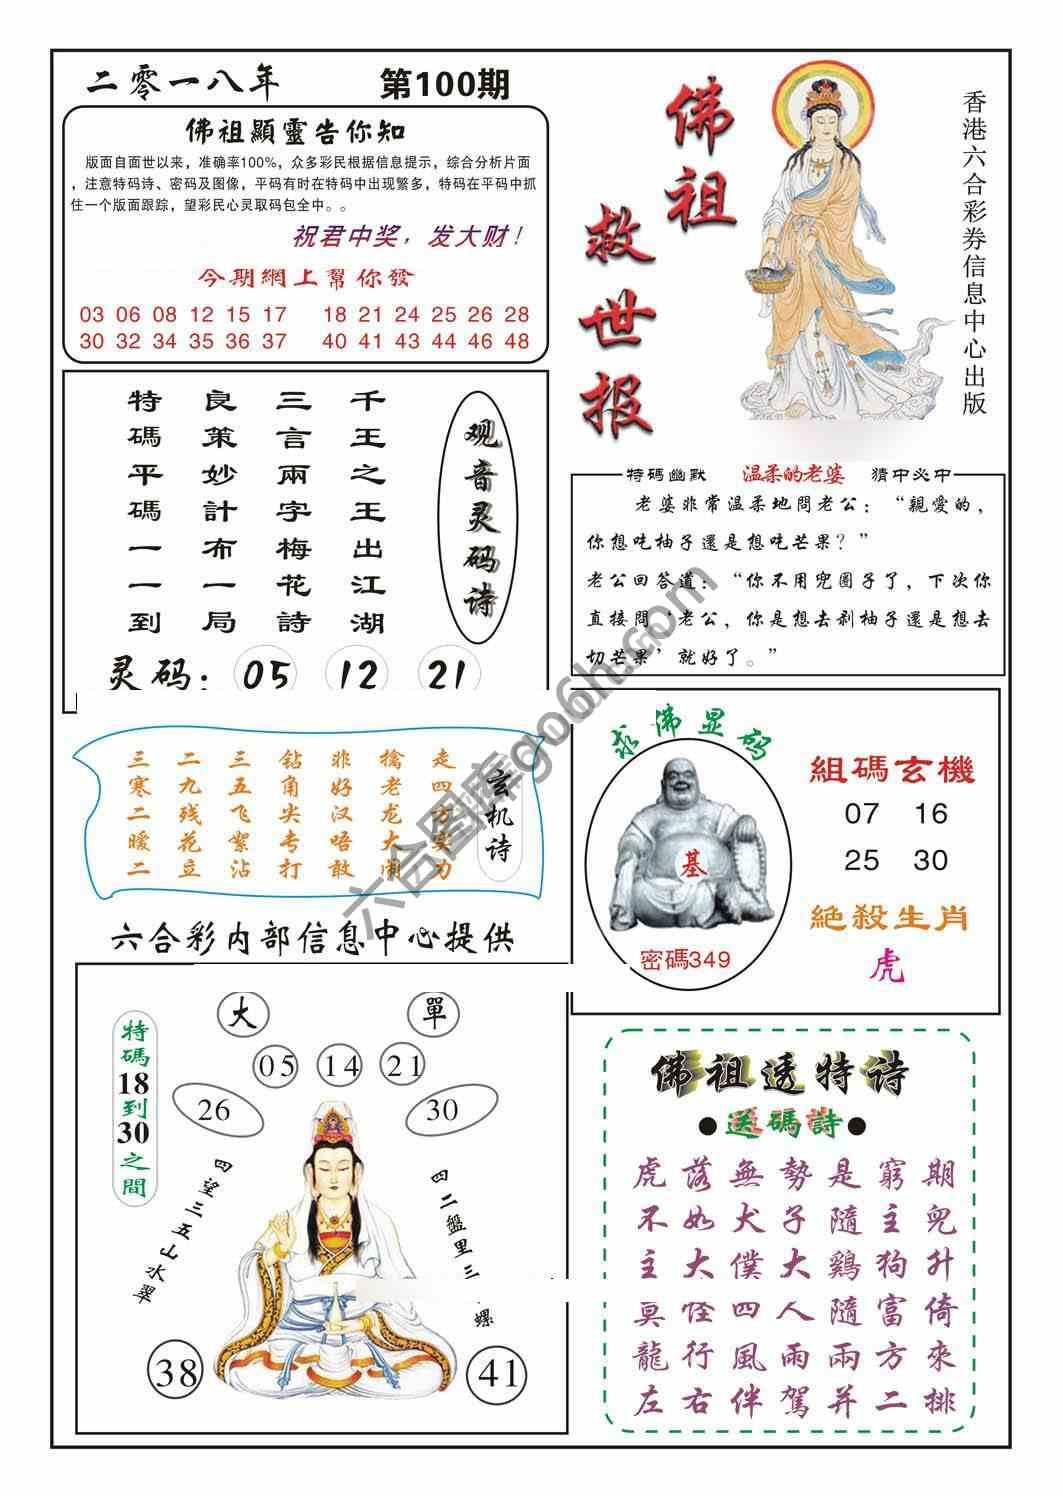 二零一八年
第100期
佛祖顯靈告你知
版面自面世以来，准确率100%，众多彩民根据信息提示，综合分析片面
，注意特码诗、密码及图像，平码有时在特码中出现繁多，特码在平码中抓
住一个版面跟踪，望彩民心灵取码包全中。。
祝君中奖，发大财！
今期網上幫你發
03 06 08 12 15 17 18 21 24 25 26 28
30 32 34 35 36 37 40 41 44 45 46 48
佛祖
救世报
香港六合彩券信息中心出版
观音灵码诗
千王之王出江湖
三言兩字梅花詩
良策妙計布一局
特碼平碼一一到
灵码： 05 12 21
特碼幽默 温柔的老婆 猜中必中
老婆非常温柔地問老公：“親愛的，
你想吃柚子還是想吃芒果？”
老公回答道：“你不用兜圈子了，下次你
直接問‘老公，你是想去剁柚子還是想去
切芒果’就好了。”
玄机诗
走四方实力
擒老龙大闹
非好汉唔敢
钻角尖专打
三五飞絮沾
二九残花立
三寒二暖二
六合彩内部信息中心提供
求佛显码
基
密碼349
組碼玄機
07 16
25 30
絶殺生肖
虎
大
單
05 14 21
26
30
特碼18到30之間
四望三五山水翠
四二盤里三
螺
38
41
佛祖透特诗
●送碼詩●
虎落無勢是窮期
不如犬子隨主兜
主大僕大鷄狗升
莫怪四人隨富倚
龍行風雨兩方來
左右伴駕并二排
六合图库go6h.com